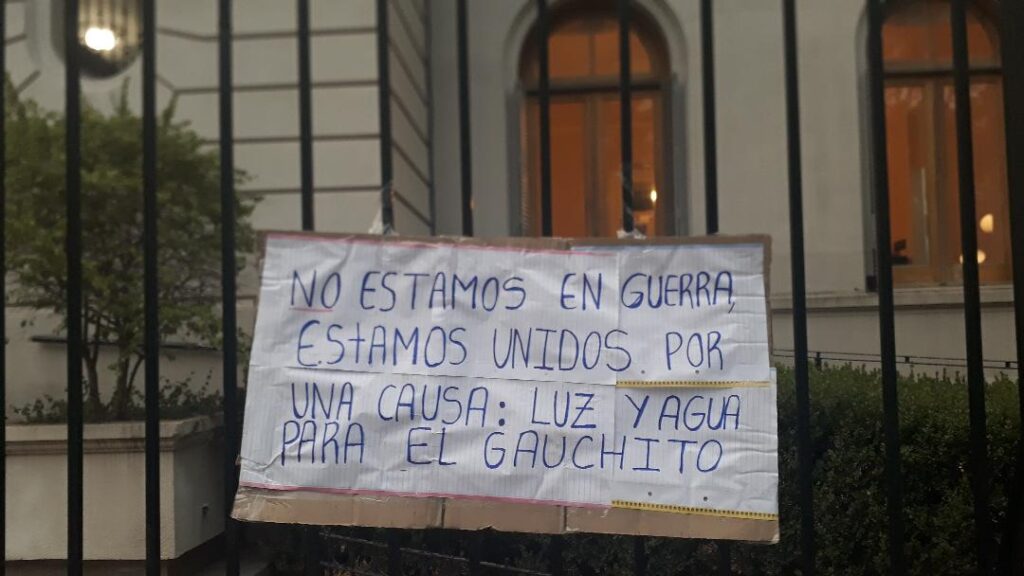 NO ESTAMOS EN GUERRA,
ESTAMOS UNIDOS POR
UNA CAUSA: LUZ Y AGUA
PARA EL GAUCHITO